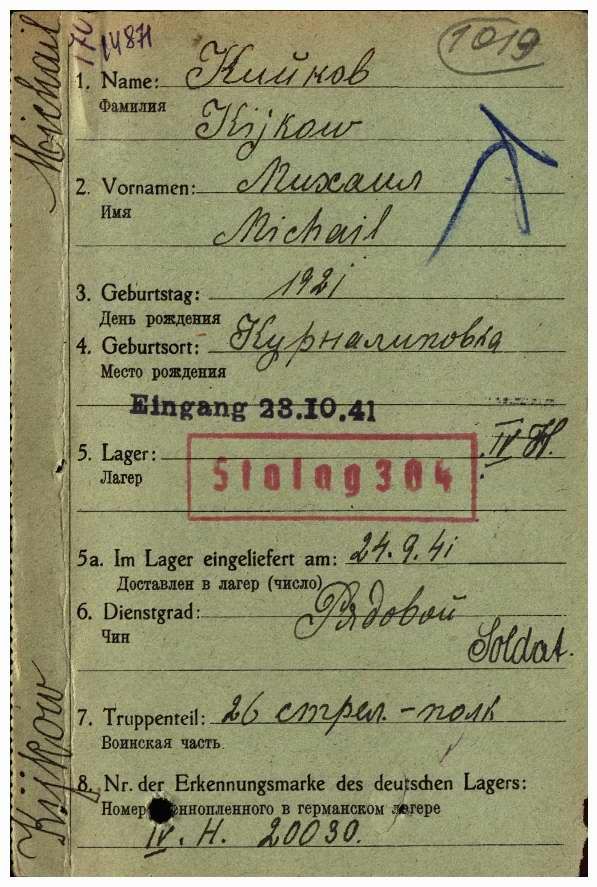 Michail
Kijkow
170
14871
1019
1. Name: Кийков
Фамилия
Kijkow
2. Vornamen: Михаил
Имя
Michail
3. Geburtstag: 1921
День рождения
4. Geburtsort: Курналиповка
Место рождения
Eingang 23.10.41
5. Lager: IV H.
Лагер
Stalag 304
5a. Im Lager eingeliefert am: 24.9.41
Доставлен в лагер (число)
6. Dienstgrad: Рядовой
Чин
Soldat.
7. Truppenteil: 26 стрел.-полк
Воинская часть
8. Nr. der Erkennungsmarke des deutschen Lagers:
Номер в германском лагере
IV. H. 20030.